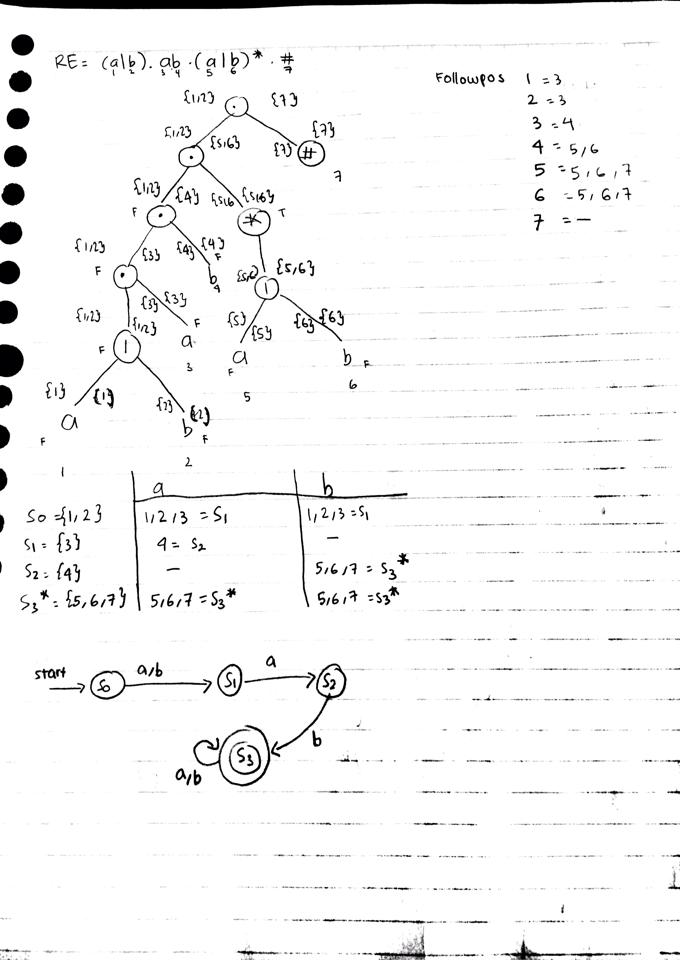 RE = (a|b).ab.(a|b)*.#
1 2 3 4 5 6 7
Followpos 1 = 3
2 = 3
3 = 4
4 = 5,6
5 = 5,6,7
6 = 5,6,7
7 = —
{1,2} . {7}
{1,2} . {5,6} {7} # {7}
7
{1,2} . {4} {5,6 * {5,6}
F T
{1,2} . {3} {4} b {4}
F F 4
{5,6} | {5,6}
{1,2} | {1,2} {3} a {3}
F F 3
{5} a {5} {6} b {6}
F 5 F 6
{1} a {1} {2} b {2}
F 1 F 2
a b
S0 = {1,2} 1,2,3 = S1 1,2,3 = S1
S1 = {3} 4 = S2 —
S2 = {4} — 5,6,7 = S3*
S3* = {5,6,7} 5,6,7 = S3* 5,6,7 = S3*
start S0 a,b S1 a S2
b
S3
a,b